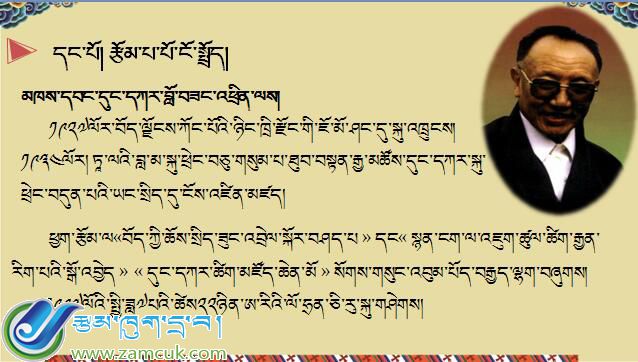 དང་པོ། རྩོམ་པ་པོ་ངོ་སྤྲོད།
མཁས་དབང་དུང་དཀར་བློ་བཟང་འཕྲིན་ལས།
༡༩༢༧ལོར་བོད་ལྗོངས་ཀོང་པོའི་ཉིང་ཁྲི་རྫོང་གི་ཇོ་མོ་ཤང་དུ་སྐུ་འཁྲུངས།
༡༩༣༤ལོར། ཏཱ་ལའི་བླ་མ་སྐུ་ཕྲེང་བཅུ་གསུམ་པ་ཐུབ་བསྟན་རྒྱ་མཚོས་དུང་དཀར་སྐུ་
ཕྲེང་བདུན་པའི་ཡང་སྲིད་དུ་ངོས་འཛིན་མཛད།
ཕྱག་རྩོམ་ལ«བོད་ཀྱི་ཆོས་སྲིད་ཟུང་འབྲེལ་སྐོར་བཤད་པ » དང« སྙན་ངག་ལ་འཇུག་ཚུལ་ཚིག་རྒྱན་
རིག་པའི་སྒོ་འབྱེད » « དུང་དཀར་ཚིག་མཛོད་ཆེན་མོ » སོགས་གསུང་འབུམ་པོད་བརྒྱད་ལྷག་བཞུགས།
༡༩༩༧ལོའི་སྤྱི་ཟླ༧པའི་ཚེས༢༢ཉིན་ཨ་རིའི་ལོ་ཧྲན་ཅི་རུ་སྐུ་གཤེགས།
རྩམ་ཁུག་དྲ་བ།
www.zamcuk.com